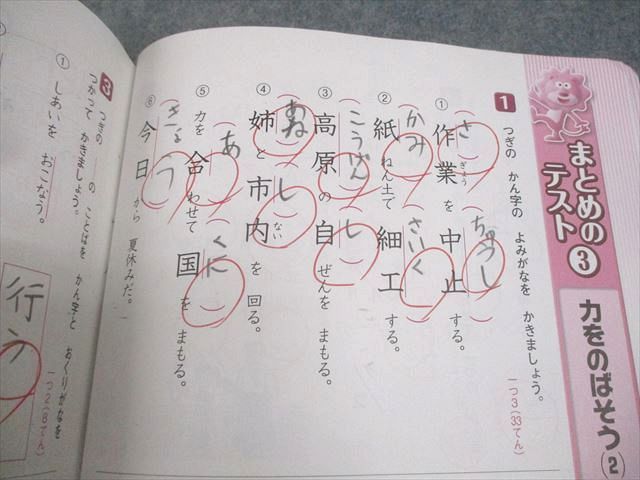 まとめの③
テスト
力をのばそう(2)
1 つぎの かん字の よみがなを かきましょう。
一つ3(33てん)
さ ぎょう ちゅうし
① 作業を中止する。
かみ さいく
② 紙ねん土で細工する。
こうげん し
③ 高原の自ぜんを まもる。
あね し ない
④ 姉と市内を 回る。
あ くに
⑤ 力を合わせて国を まもる。
きょう
⑥ 今日から 夏休みだ。
3 つぎの ―の ことばを かん字と おくりがなを
つかって かきましょう。
一つ2(8てん)
① しあいを おこなう。
行う